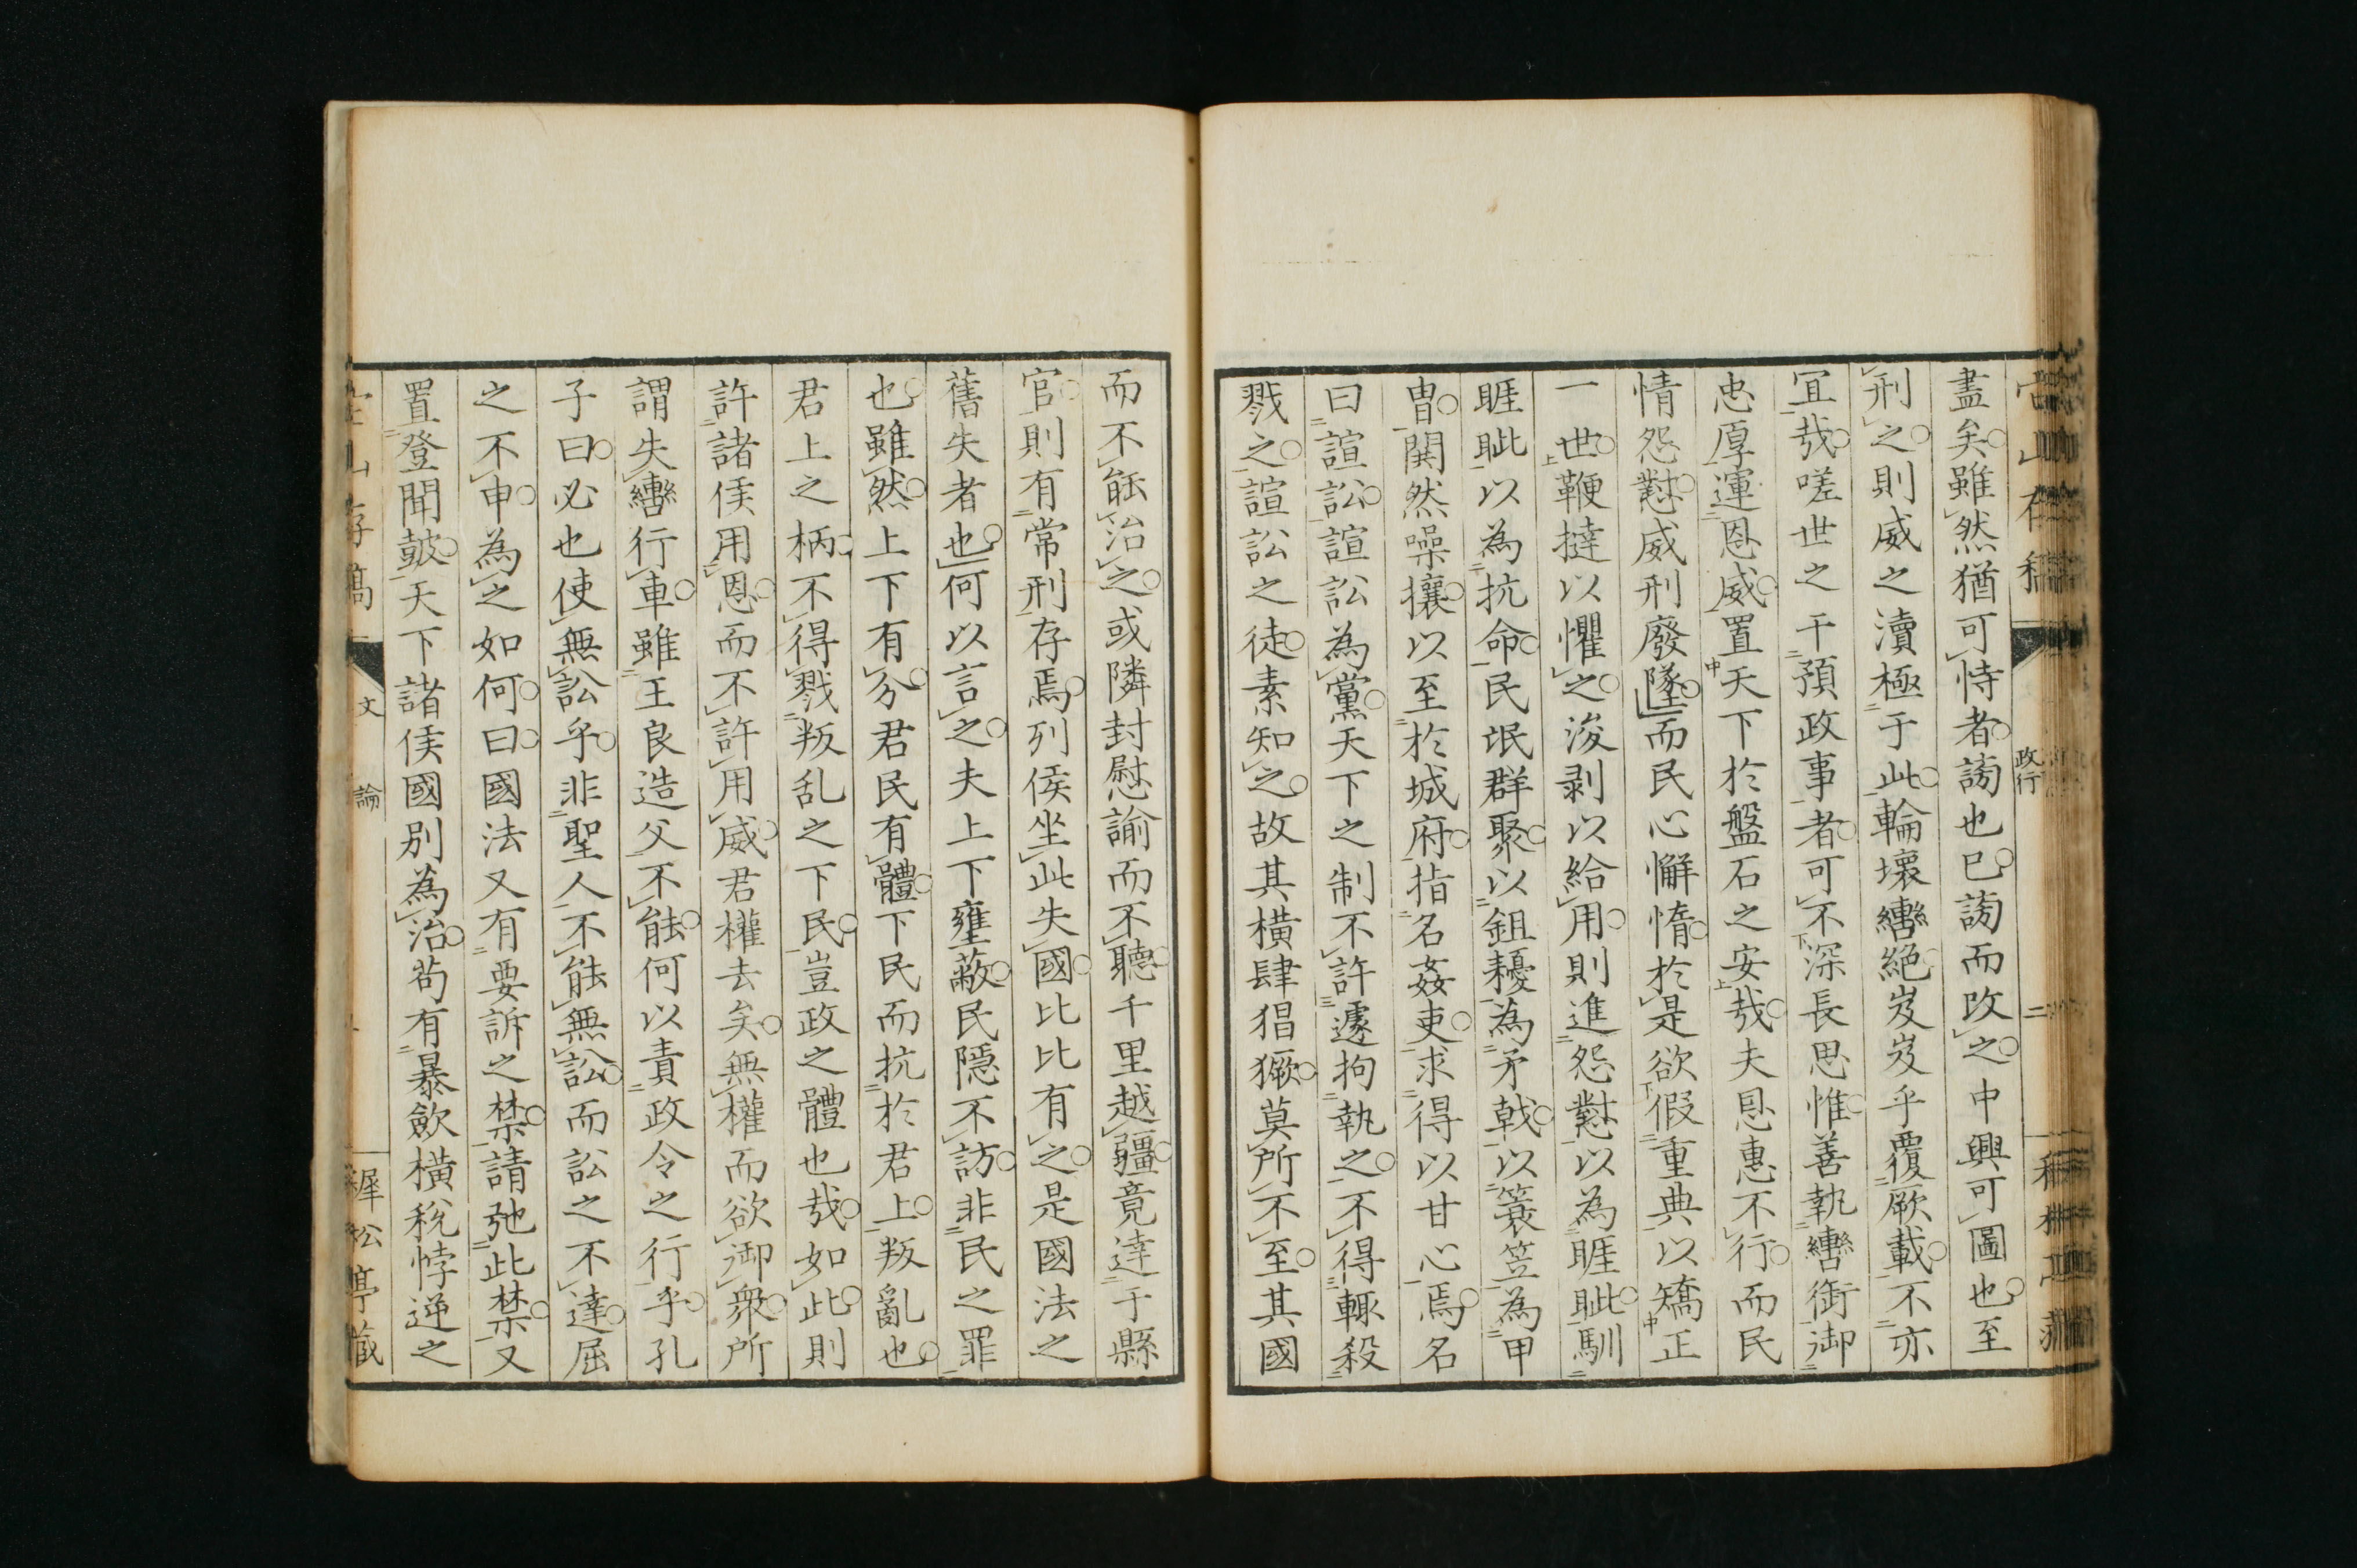 盡矣雖然猶可恃者謗也已謗而改之中興可圖也至
刑之則威之瀆極于此輪壞轡絕岌岌乎覆厥載不亦
冝哉嗟世之干預政事者可不深長思惟善執轡銜御
忠厚運恩威置天下於盤石之安哉夫恩惠不行而民
情怨懟威刑廢墜而民心懈惰於是欲假重典以矯正
一世鞭撻以懼之浚剥以給用則進怨懟以為睚眦馴
睚眦以為抗命民氓群聚以鉏耰為矛戟以簑笠為甲
冑鬨然噪攘以至於城府指名姦吏求得以甘心焉名
曰諠訟諠訟為黨天下之制不許遽拘執之不得輒殺
戮之諠訟之徒素知之故其橫肆猖獗莫所不至其國
而不能治之或隣封慰諭而不聽千里越疆竟達于縣
官則有常刑存焉列侯坐此失國比比有之是國法之
舊失者也何以言之夫上下壅蔽民隱不訪非民之罪
也雖然上下有分君民有體下民而抗於君上叛亂也
君上之柄不得戮叛乱之下民豈政之體也哉如此則
許諸侯用恩而不許用威君權去矣無權而欲御衆所
謂失轡行車雖王良造父不能何以責政令之行乎孔
子曰必也使無訟乎非聖人不能無訟而訟之不達屈
之不申為之如何曰國法又有要訴之禁請弛此禁又
置登聞皷天下諸侯國別為治苟有暴歛橫稅悖逆之
文
論
政行
二
犀松亭藏